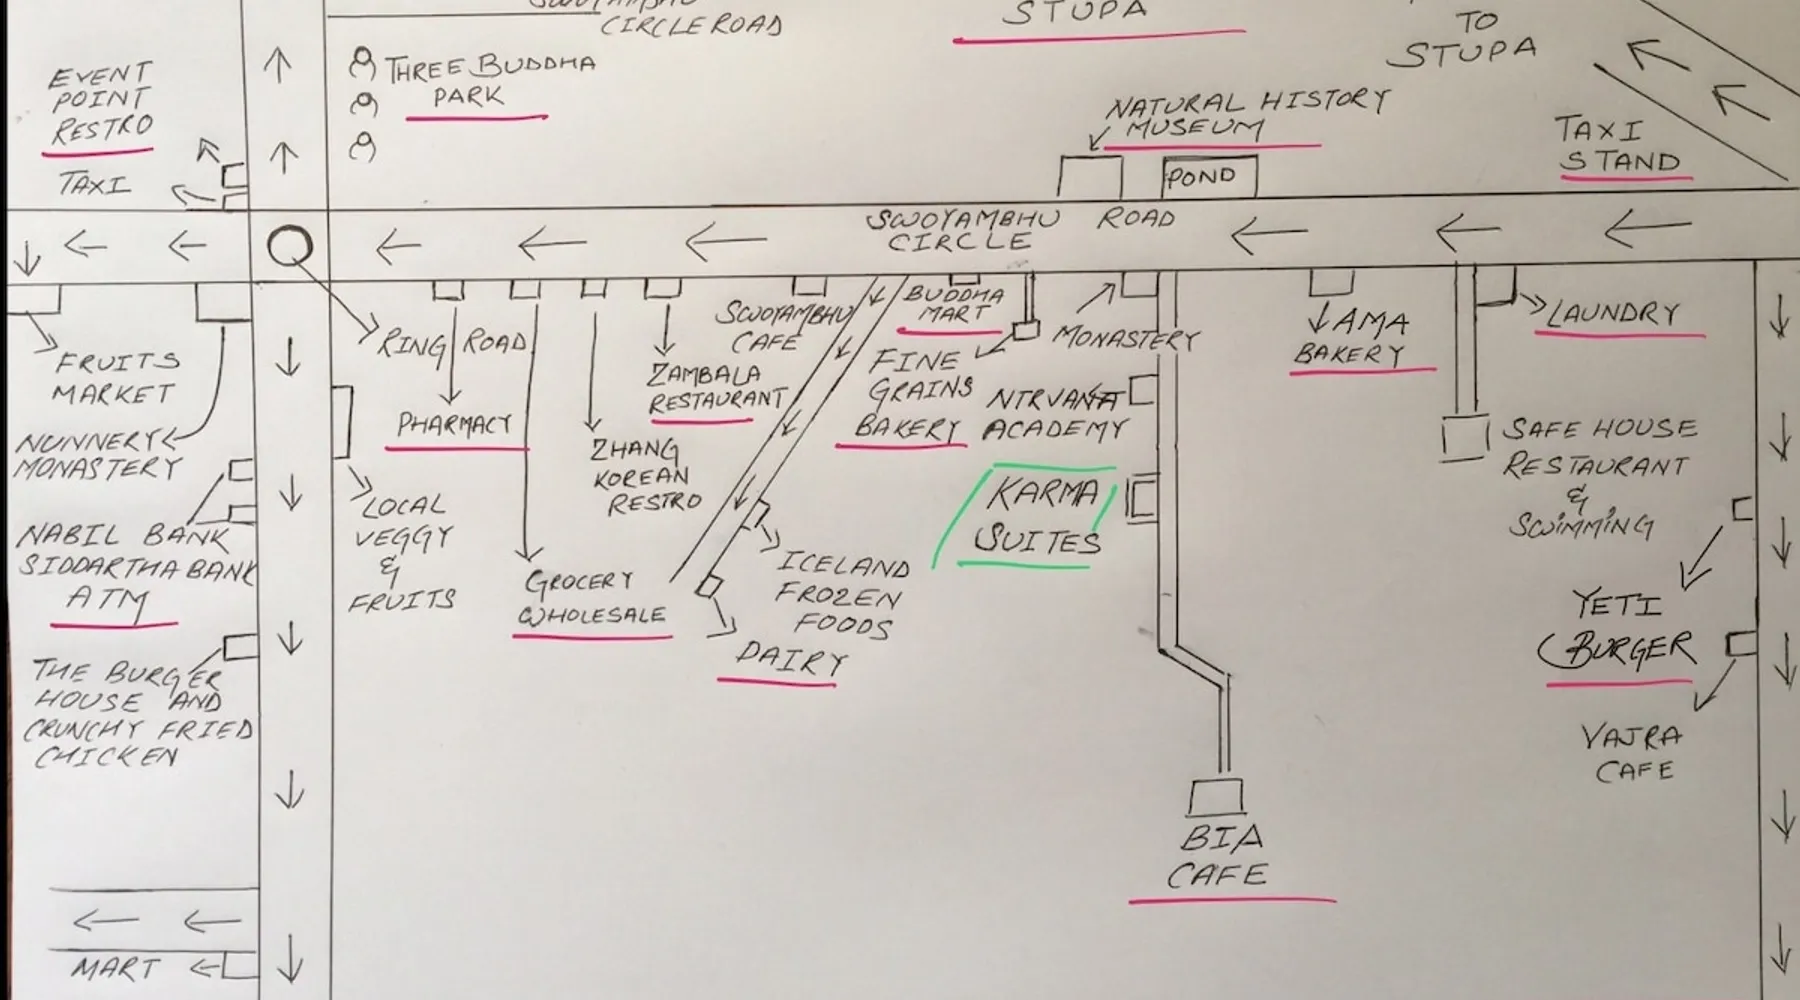 SWOYAMBHU
CIRCLE ROAD
STUPA
TO
STUPA
EVENT
POINT
RESTRO
TAXI
THREE BUDDHA
PARK
NATURAL HISTORY
MUSEUM
POND
TAXI
STAND
SWOYAMBHU ROAD
CIRCLE
FRUITS
MARKET
NUNNERY
MONASTERY
NABIL BANK
SIDDARTHA BANK
ATM
THE BURGER
HOUSE AND
CRUNCHY FRIED
CHICKEN
MART
RING ROAD
PHARMACY
LOCAL
VEGGY
&
FRUITS
GROCERY
WHOLESALE
ZHANG
KOREAN
RESTRO
ZAMBALA
RESTAURANT
SWOYAMBHU
CAFE
BUDDHA
MART
FINE
GRAINS
BAKERY
ICELAND
FROZEN
FOODS
DAIRY
MONASTERY
NIRVANA
ACADEMY
KARMA
SUITES
BIA
CAFE
AMA
BAKERY
LAUNDRY
SAFE HOUSE
RESTAURANT
&
SWIMMING
YETI
BURGER
VAJRA
CAFE